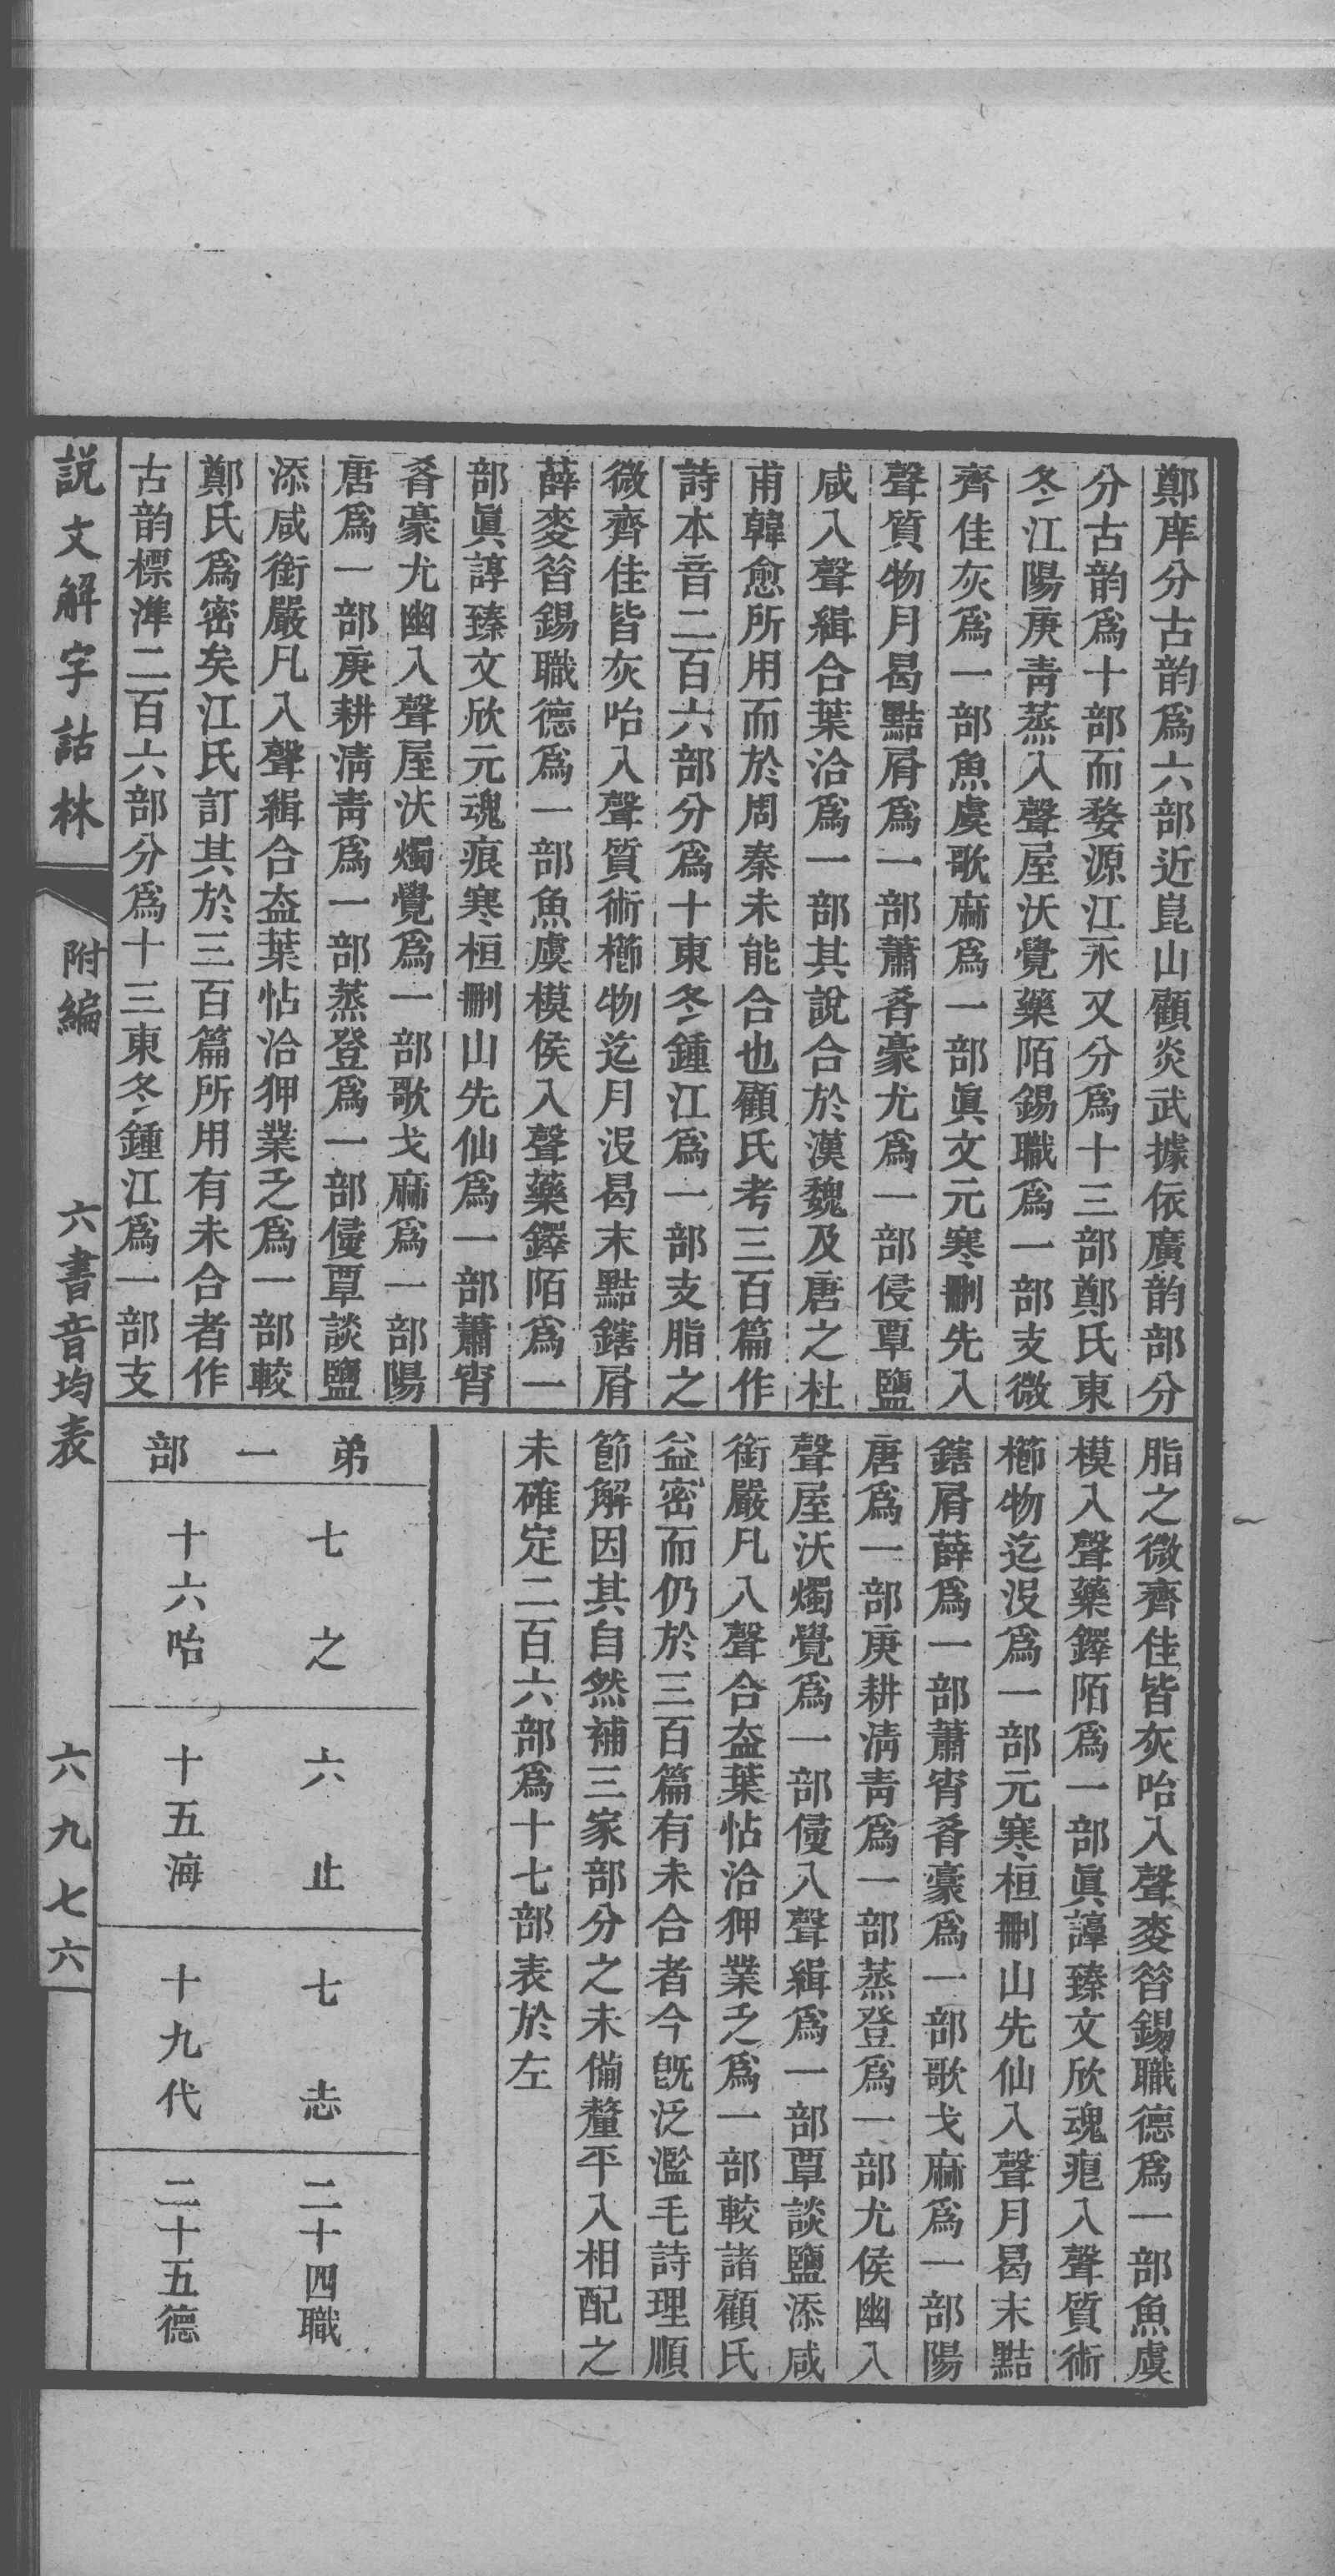 鄭庠分古韵爲六部近崑山顧炎武據依廣韵部分
分古韵爲十部而婺源江永又分爲十三部鄭氏東
冬江陽庚靑蒸入聲屋沃覺藥陌錫職爲一部支微
齊佳灰爲一部魚虞歌麻爲一部眞文元寒刪先入
聲質物月曷黠屑爲一部蕭肴豪尤爲一部侵覃鹽
咸入聲緝合葉洽爲一部其說合於漢魏及唐之杜
甫韓愈所用而於周秦未能合也顧氏考三百篇作
詩本音二百六部分爲十東冬鍾江爲一部支脂之
微齊佳皆灰咍入聲質術櫛物迄月沒曷末黠鎋屑
薛麥昔錫職德爲一部魚虞模侯入聲藥鐸陌爲一
部眞諄臻文欣元魂痕寒桓刪山先仙爲一部蕭宵
肴豪尤幽入聲屋沃燭覺爲一部歌戈麻爲一部陽
唐爲一部庚耕淸靑爲一部蒸登爲一部侵覃談鹽
添咸銜嚴凡入聲緝合盍葉怗洽狎業乏爲一部較
鄭氏爲密矣江氏訂其於三百篇所用有未合者作
古韵標準二百六部分爲十三東冬鍾江爲一部支
脂之微齊佳皆灰咍入聲麥昔錫職德爲一部魚虞
模入聲藥鐸陌爲一部眞諄臻文欣魂痕入聲質術
櫛物迄沒爲一部元寒桓刪山先仙入聲月曷末黠
鎋屑薛爲一部蕭宵肴豪爲一部歌戈麻爲一部陽
唐爲一部庚耕淸靑爲一部蒸登爲一部尤侯幽入
聲屋沃燭覺爲一部侵入聲緝爲一部覃談鹽添咸
銜嚴凡入聲合盍葉怗洽狎業乏爲一部較諸顧氏
益密而仍於三百篇有未合者今旣泛濫毛詩理順
節解因其自然補三家部分之未備釐平入相配之
未確定二百六部爲十七部表於左
弟一部
七之
十六咍
六止
十五海
七志
十九代
二十四職
二十五德
說文解字詁林
附編
六書音均表
六九七六